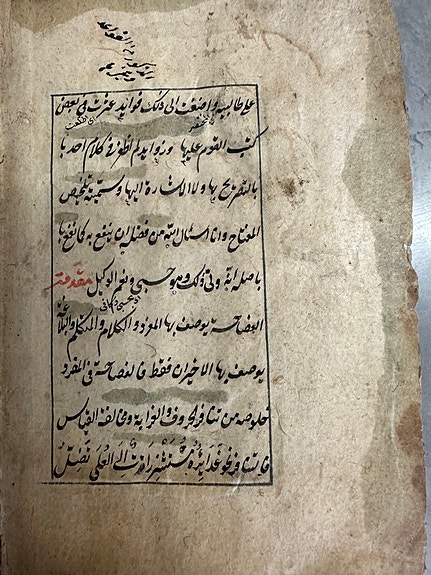 على طالبيه واضفت الى ذلك فوايد عثرت فى بعض
كتب القوم عليها وزوايد لم اظفر فى كلام احد بها
بالتصريح بها ولا الاشارة اليها وسميته تلخيص
المفتاح وانا اسئال الله من فضله ان ينفع به كما نفع بها
باصله انه ولى ذلك وهو حسبى ونعم الوكيل مقدمة
الفصاحة يوصف بها المفرد والكلام والمتكلم والبلاغة
يوصف بها الاخيران فقط فالفصاحة فى المفرد
خلوصه من تنافر الحروف والغرابة ومخالفة القياس
فالتنافر نحو غَدَائِرُهُ مُسْتَشْزِرَاتٌ اِلَى الْعُلَى تَضِلُّ